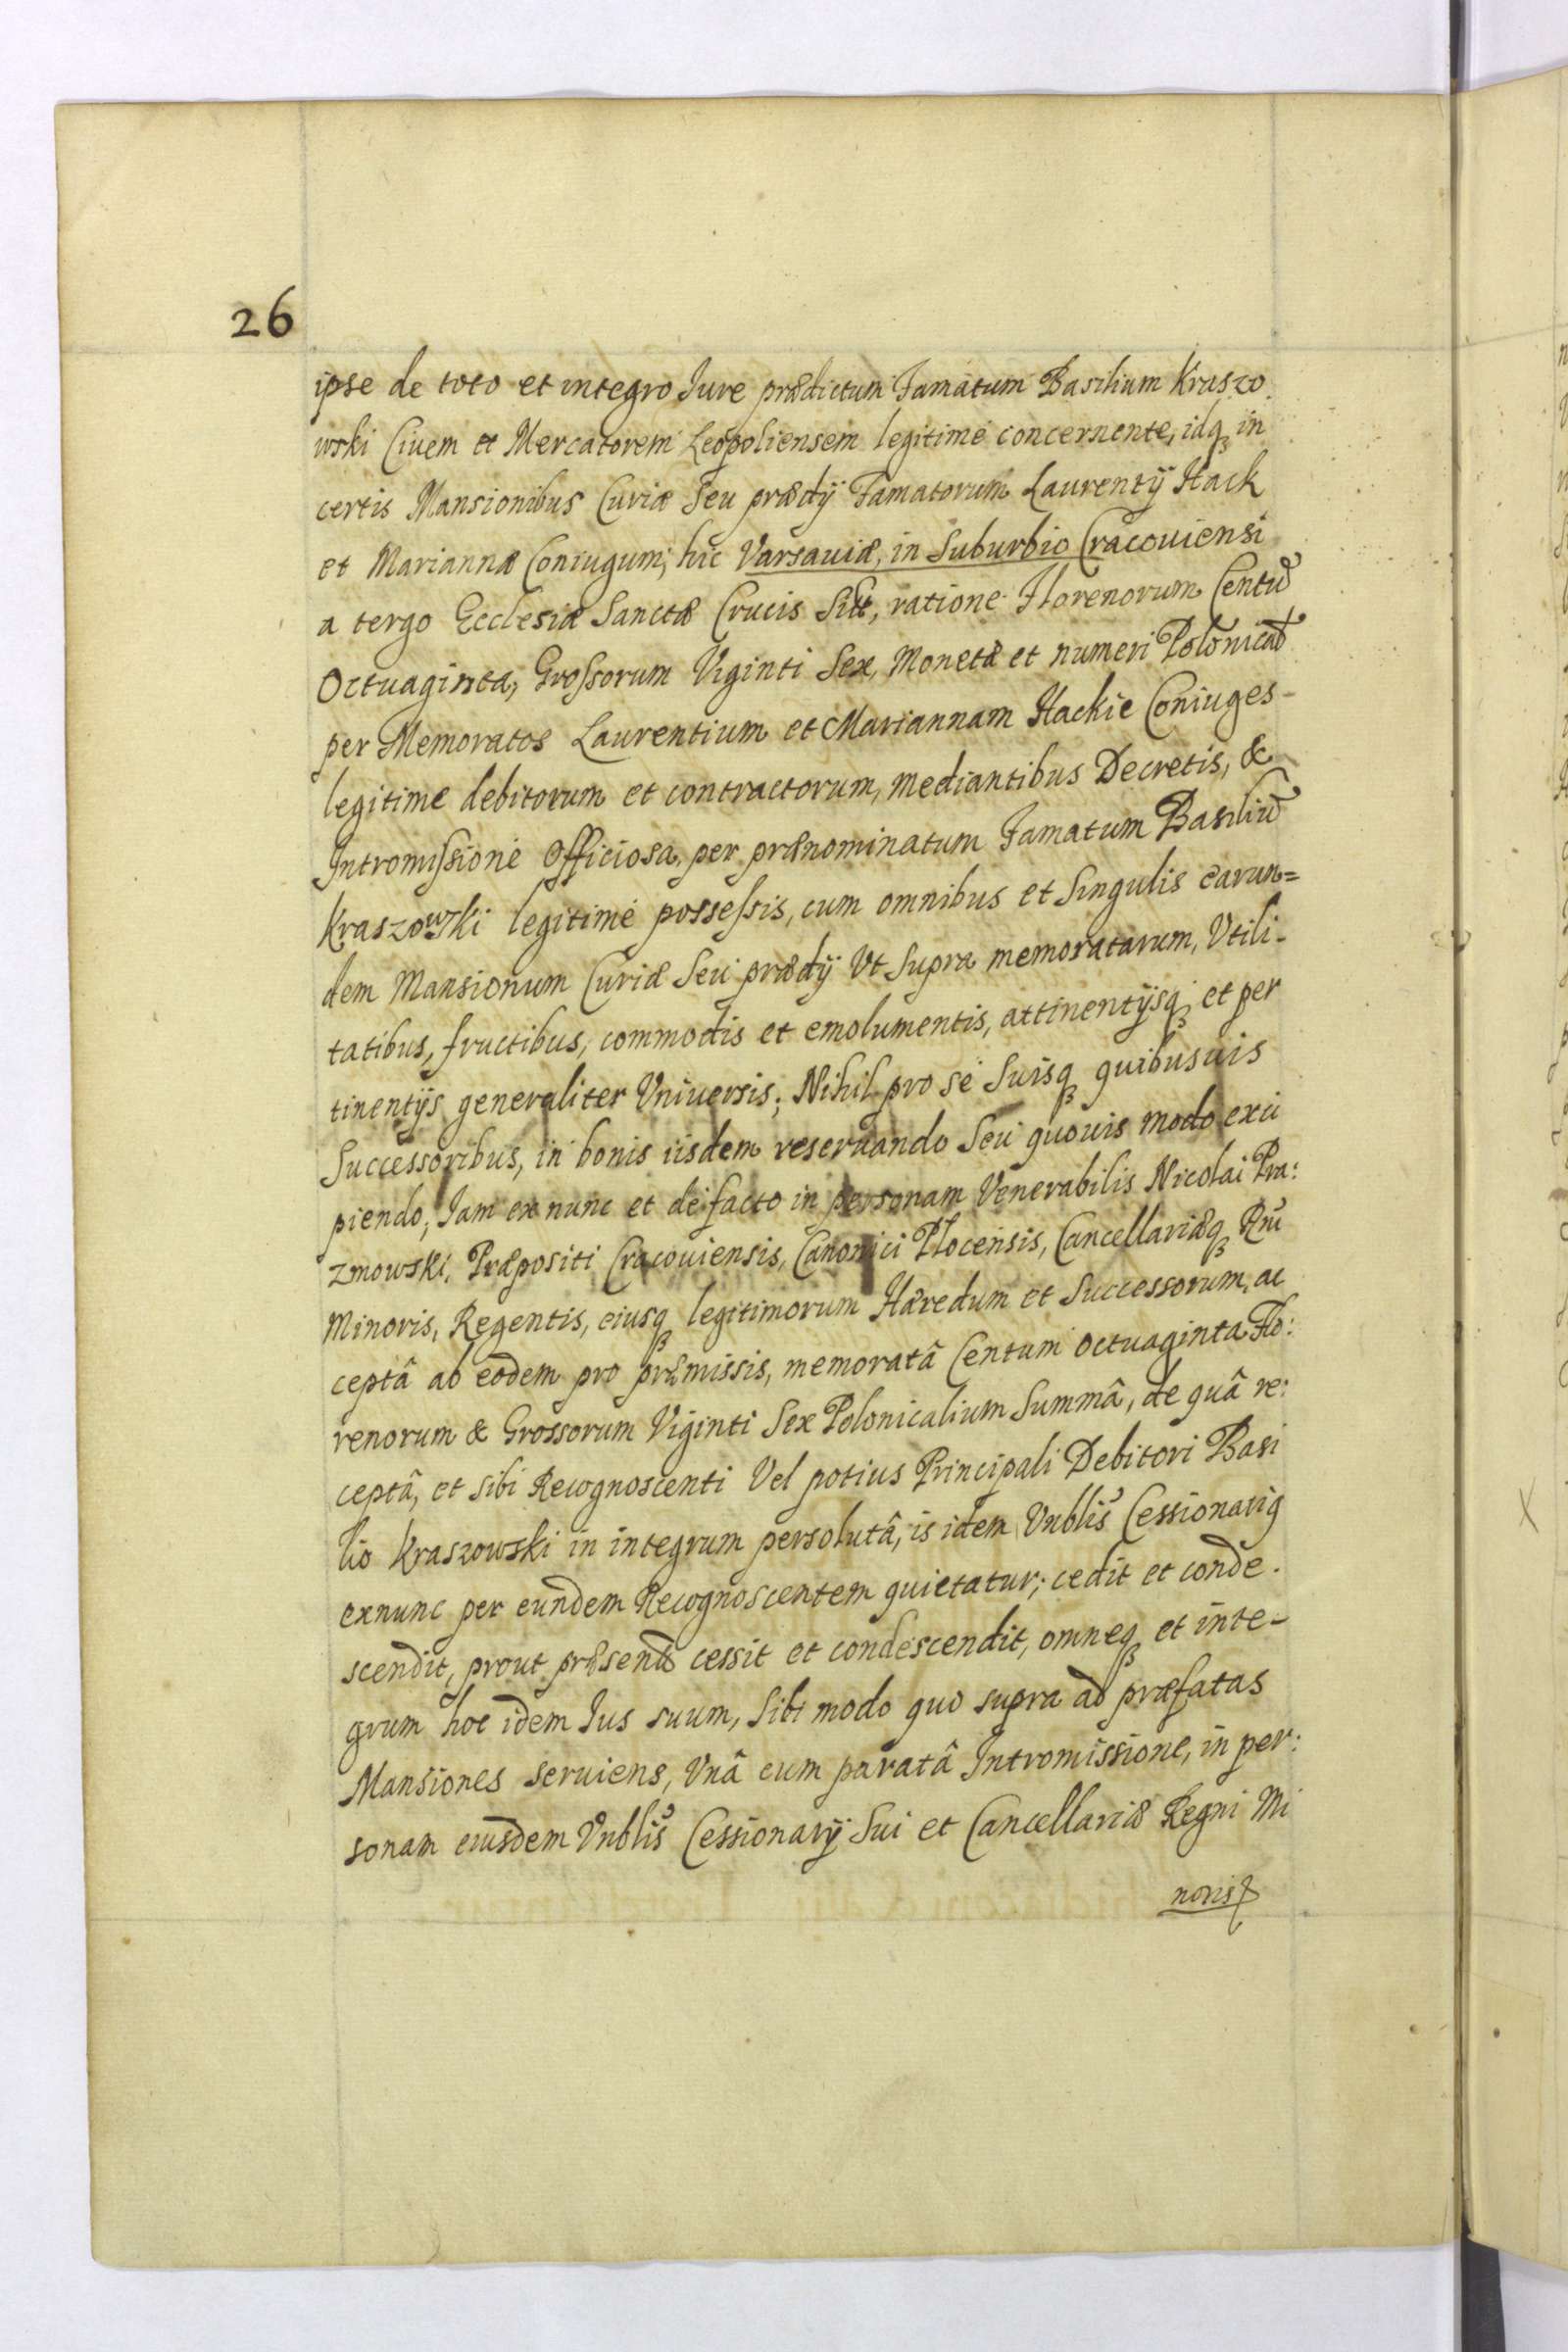 26
ipse de toto et integro Jure prædictum Famatum Basilium Kraszo
wski Civem et Mercatorem Leopoliensem legitimè concernente, idq3 in
certis Mansionibus Curiæ Seu prædÿ Famatorum Laurentÿ Hack
et Mariannæ Coniugum, hic Varsaviæ, in Suburbio Cracoviensi
a tergo Ecclesiæ Sanctæ Crucis Sitæ, ratione Florenorum Centũ
Octuaginta, Grossorum Viginti Sex, Monetæ et numeri
per Memoratos Laurentium et Mariannam Hackie Coniuges-
legitime debitorum et contractorum, mediantibus Decretis, &
Intromissione Officiosa, per prænominatum Famatum Basiliũ
Kraszowski legitimè possessis, cum omnibus et Singulis earun=
dem Mansionum Curiæ Seu prædÿ Vt Supra memoratarum, Vtili-
tatibus, fructibus, commodis et emolumentis, attinentÿsq3 et per
tinentÿs generaliter Vniversis; Nihil pro se Suisq3 quibusuis
Successoribus, in bonis iisdem reseruando Seu quouis modo exci
piendo, Iam ex nunc et de facto in personam Venerabilis Nicolai Pra:
zmowski, Præpositi Cracouiensis, Canonici Plocensis, Cancellariæq3 Rni
Minoris, Regentis, eiusq3 legitimorum Hæredum et Successorum, ac
ceptâ ab eodem pro præmissis, memoratâ Centum octuaginta Flo:
renorum & Grossorum Viginti Sex Polonicalium Summâ, de quâ re:
ceptâ, et sibi Recognoscenti Vel potius Principali Debitori Basi
lio Kraszowski in integrum persolutâ, is idem Vnblis Cessionarig
exnunc per eundem Recognoscentem quietatur; cedit et conde.
scendit, prout præsentib cessit et condescendit, omneq3 et inte-
grum hoc idem Ius suum, Sibi modo quo supra ad præfatas
Mansiones seruiens, Vnâ cum paratâ Intromissione, in per:
sonam eiusdem Vnblis Cessionarÿ Sui et Cancellariæ Regni Mi
noris